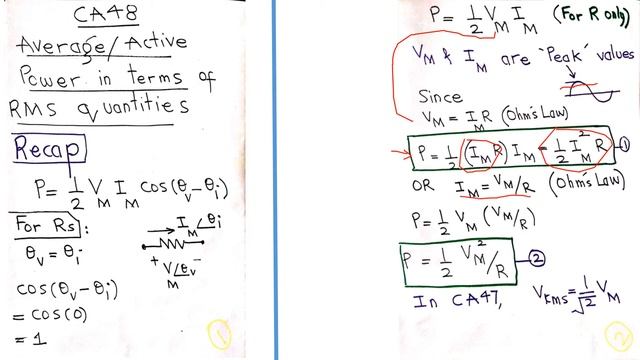 CA48
Average/Active
Power in terms of
RMS quantities
Recap
P = 1/2 V_M I_M cos(θ_v − θ_i)
For Rs:
I_M∠θi
θ_v = θ_i
+ V_M∠θ_v −
cos(θ_v − θ_i)
= cos(0)
= 1
1
P = 1/2 V_M I_M (For R only)
V_M & I_M are 'Peak' values
Since
V_M = I_M R (Ohm's Law)
P = 1/2 (I_M R) I_M = 1/2 I_M² R ①
OR I_M = V_M/R (Ohm's Law)
P = 1/2 V_M (V_M/R)
P = 1/2 V_M²/R ②
In CA47, V_RMS = 1/√2 V_M
2